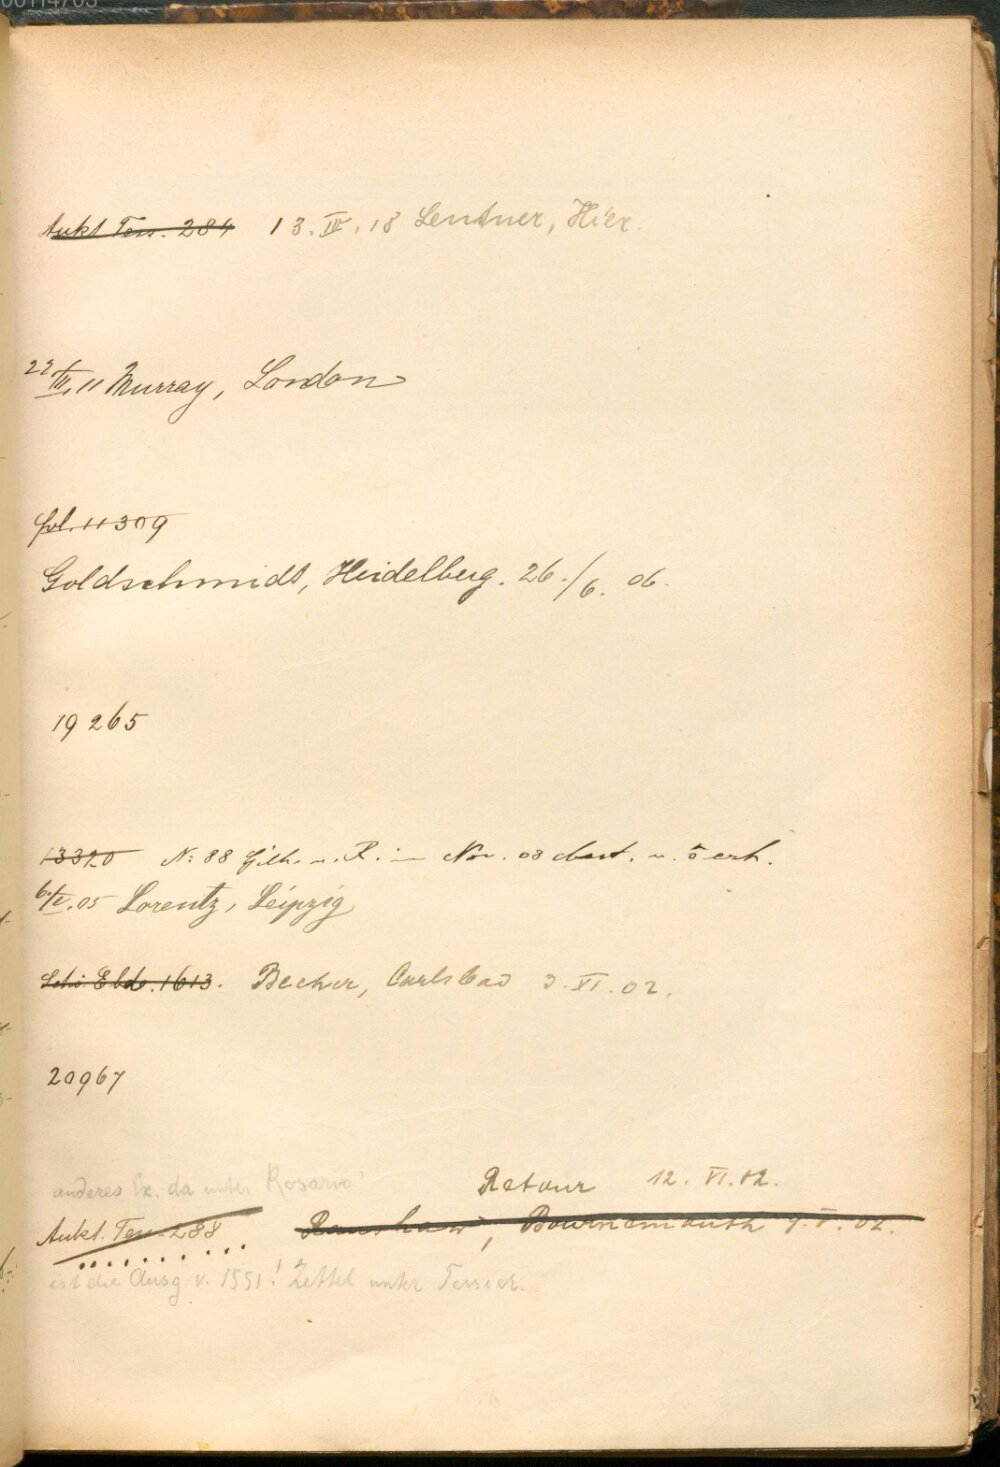 Aukt Tess. 284 13. III. 18 Lentner, Hier.
22/III. 11 Murray, London
fol. 11309
Goldschmidt, Heidelberg. 26./6. 06.
19265
13320 N: 88 Gilh. u. R. im Nov. 03 u. erh.
6./V. 05 Lorentz, Leipzig
1613. Becker, Carlsbad 3. XI. 02.
20967
anderes Ex. da unter Rosario!
Retour 12. VI. 02.
Aukt. Tess. 288 Ranshaw, Bournemouth 7. V. 02.
ist die Ausg. v. 1551! Zettel unter Tessier.